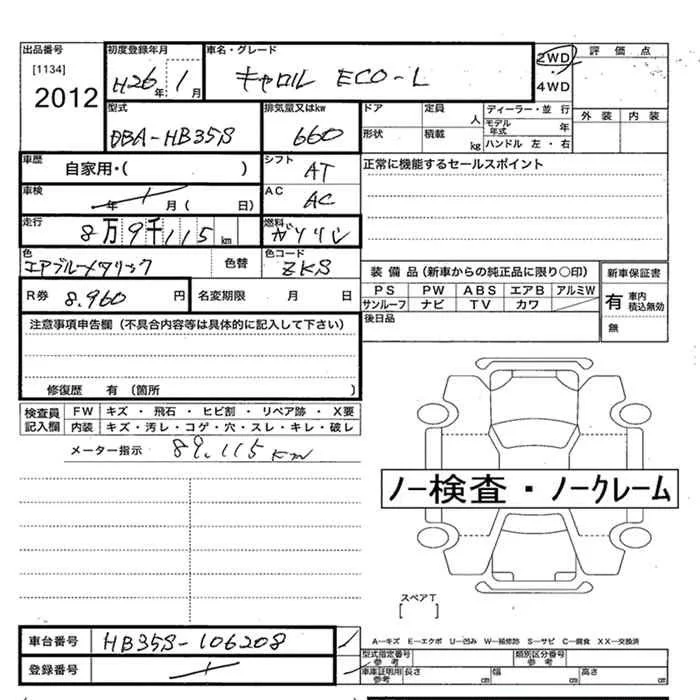 出品番号 初度登録年月 車名・グレード 評価点
[1134] 2012 H26年 1月 キャロル ECO-L 2WD 4WD
外装 内装
型式 排気量又はkw ドア 定員 人 ディーラー・並行
DBA-HB35S 660 形状 積載 kg モデル年式 年 ハンドル 左・右
車歴 自家用・( ) シフト AT 正常に機能するセールスポイント
車検 年 月( 日) AC AC
走行 8万9千115km 燃料 ガソリン
色 エアブルーメタリック 色替 色コード ZKS
装備品(新車からの純正品に限り○印) 新車保証書
R券 8.960円 名変期限 月 日
PS PW ABS エアB アルミW 有 車内積込無効
サンルーフ ナビ TV カワ 無
後日品
注意事項申告欄(不具合内容等は具体的に記入して下さい)
修復歴 有(箇所 )
検査員記入欄 FW キズ・飛石・ヒビ割・リペア跡・X要
内装 キズ・汚レ・コゲ・穴・スレ・キレ・破レ
メーター指示 89.115km
ノー検査・ノークレーム
スペアT
[ ]
車台番号 HB35S-106208
登録番号
A―キズ E―エクボ U―凹み W―補修跡 S―サビ C―腐食 XX―交換済
型式指定番号 参考 類別区分番号 参考
車庫証明用 参考 長さ cm 幅 cm 高さ cm